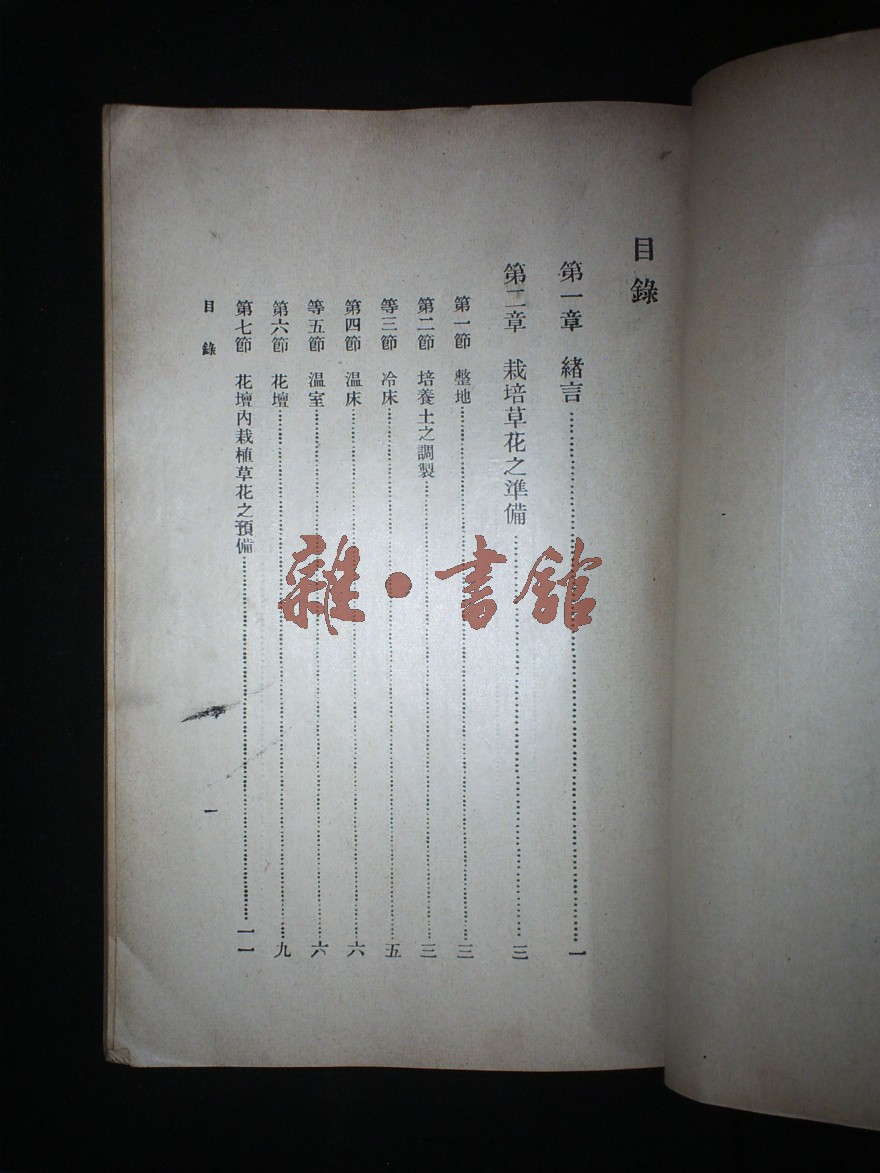 目錄
第一章 緒言……一
第二章 栽培草花之準備……三
第一節 整地……三
第二節 培養土之調製……三
等三節 冷床……五
第四節 温床……六
等五節 温室……六
第六節 花壇……九
第七節 花壇內栽植草花之預備……一一
目錄 一
雜·書館